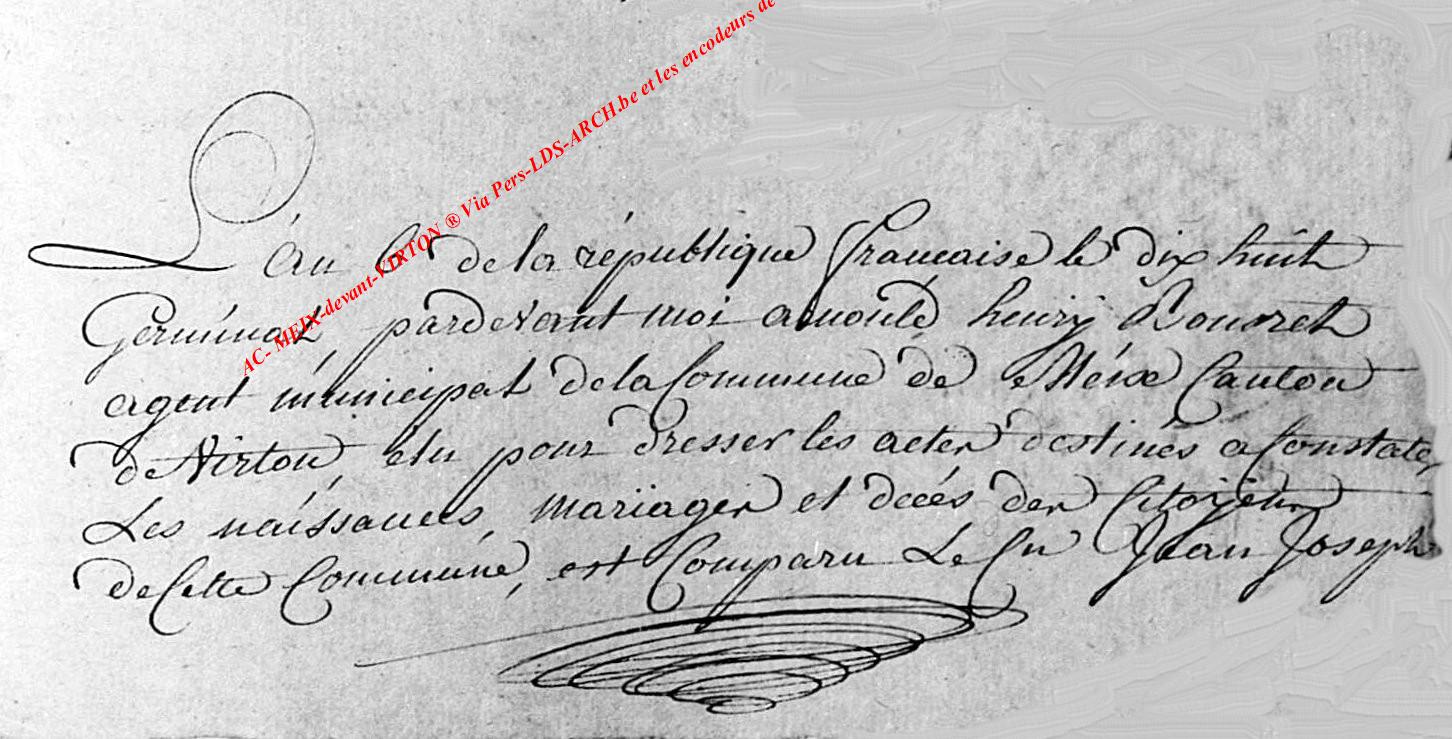 AC- MEIX-devant-VIRTON ® Via Pers-LDS-ARCH.be et les encodeurs de
L'an 6e de la république française le dix huit
Germinal, pardevant moi arnould henry
agent municipal de la Commune de Méix Canton
de Virton, élu pour dresser les actes destinés a Constater
Les naissances, mariages et decés des Citoyens
de Cette Commune, est Comparu Le Cn Jean Joseph